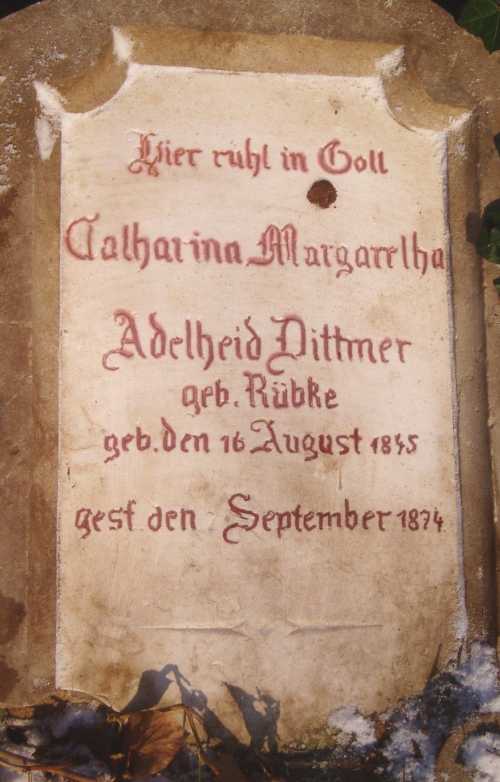 Hier ruht in Gott
Catharina Margaretha
Adelheid Dittmer
geb. Rübke
geb. den 16 August 1845
gest den September 1874